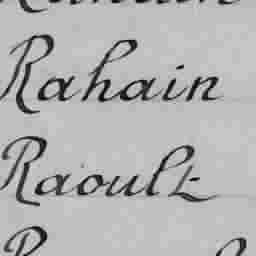 Rahain
Raoult